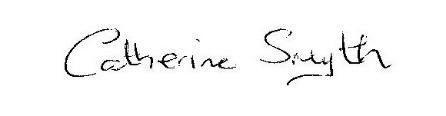 Catherine Smyth